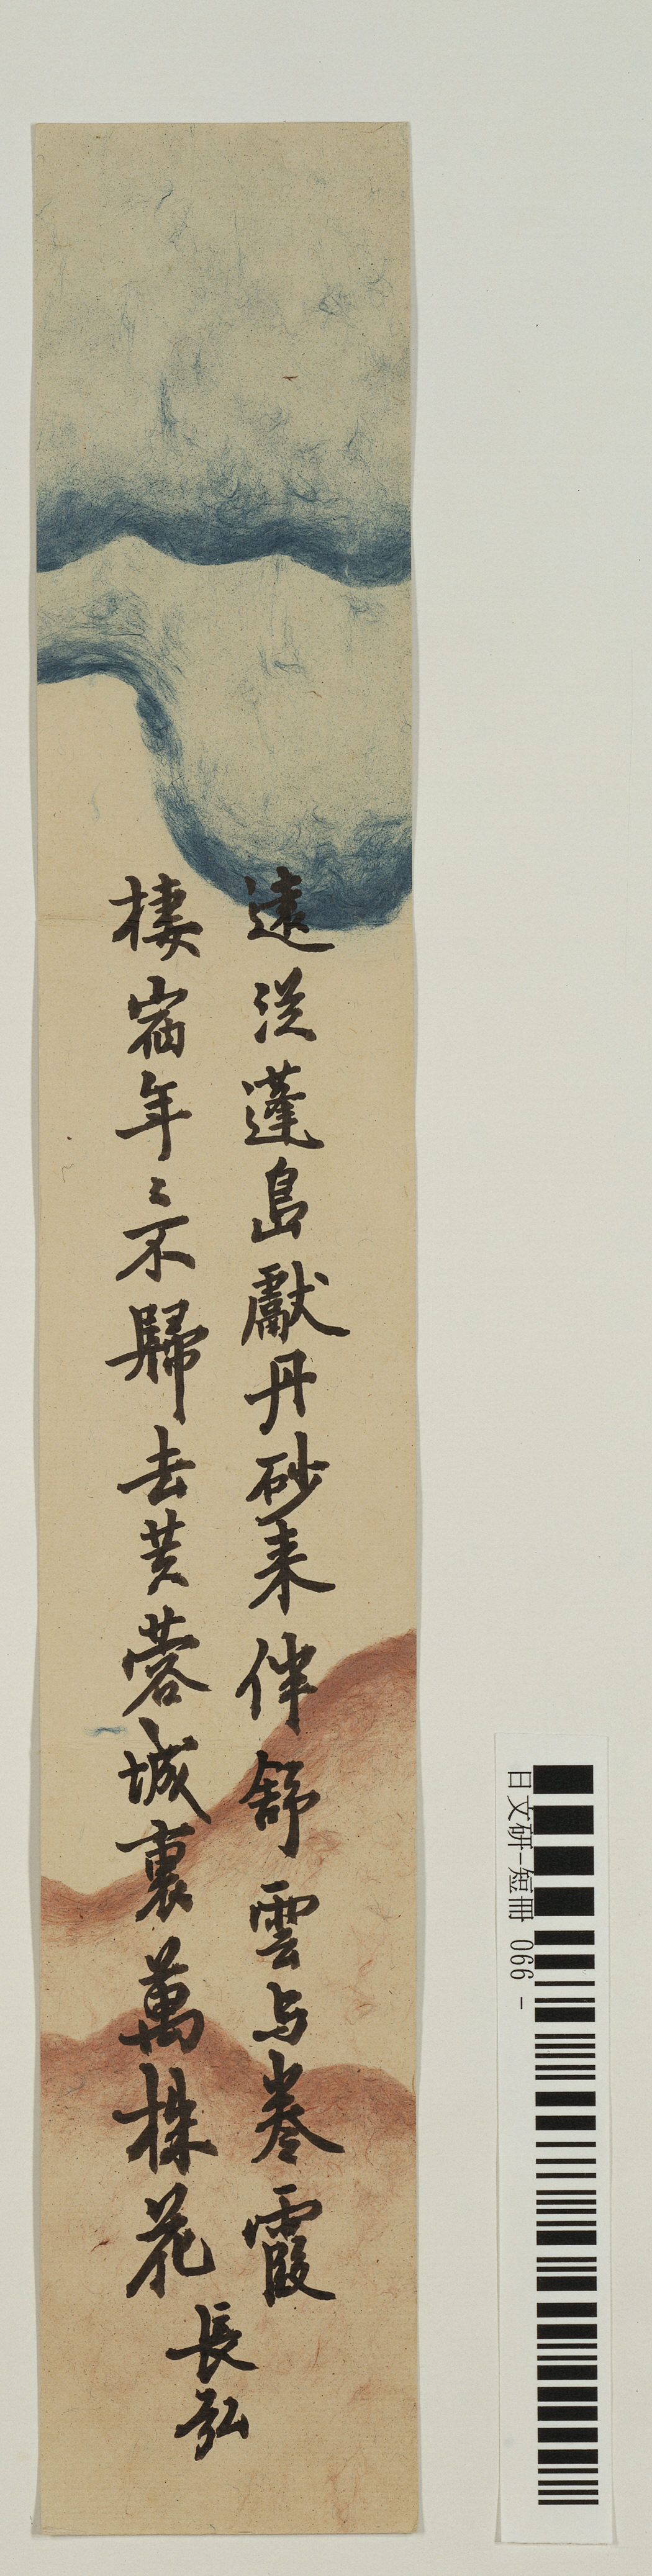 遠從蓬島獻丹砂来伴舒雲与巻霞
棲宿年々不歸去芙蓉城裏萬株花
長弘
日文研-短冊 066 -